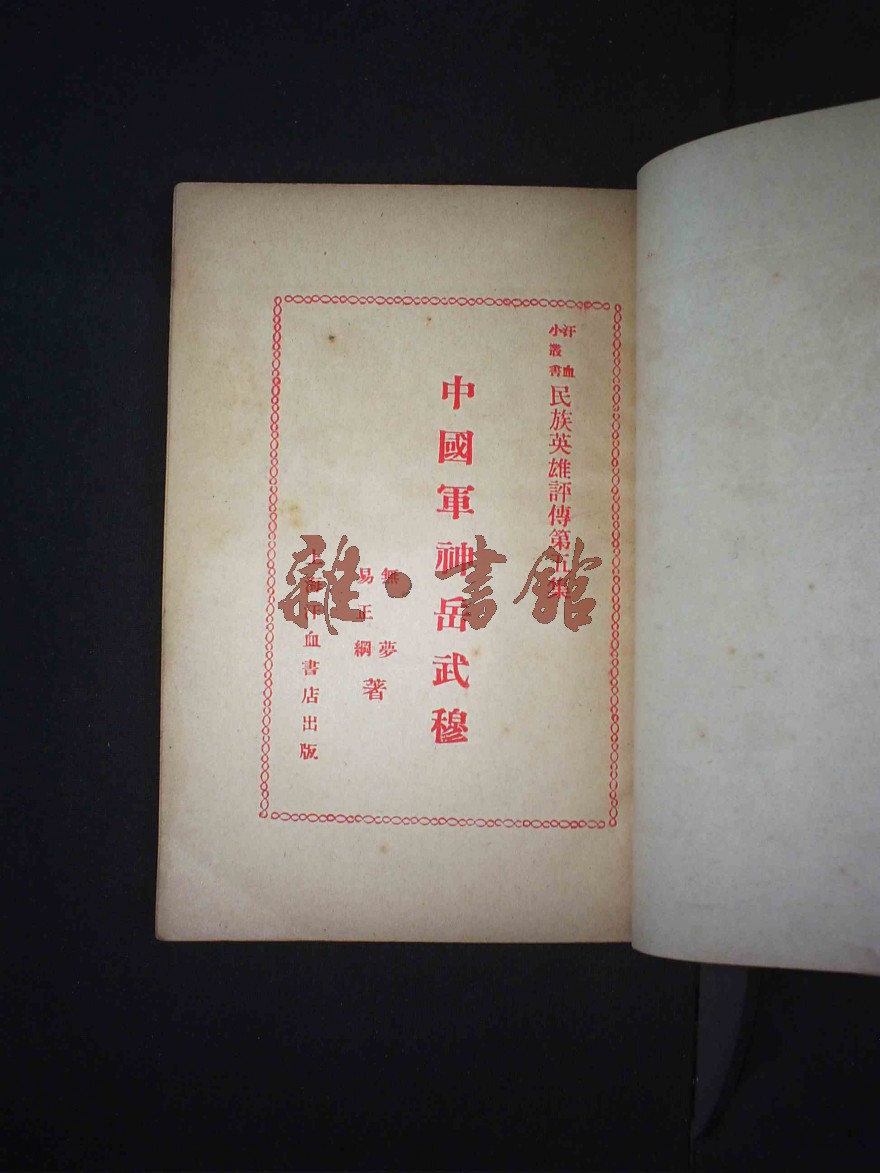 汗血
小叢書
民族英雄評傳第五集
中國軍神岳武穆
無夢
易正綱
著
上海汗血書店出版
雜·書館